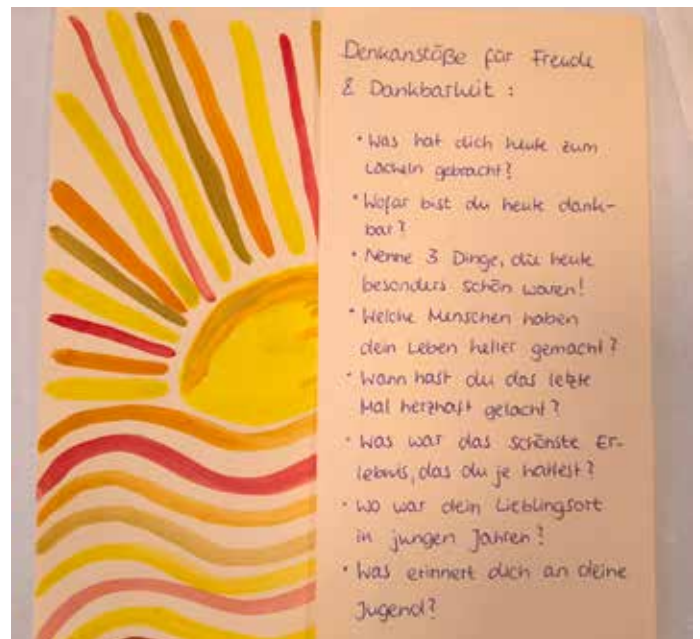 Denkanstöße für Freude
& Dankbarkeit :
• Was hat dich heute zum
Lächeln gebracht?
• Wofür bist du heute dank-
bar?
• Nenne 3 Dinge, die heute
besonders schön waren!
• Welche Menschen haben
dein Leben heller gemacht?
• Wann hast du das letzte
Mal herzhaft gelacht?
• Was war das schönste Er-
lebnis, das du je hattest?
• Wo war dein Lieblingsort
in jungen Jahren?
• Was erinnert dich an deine
Jugend?